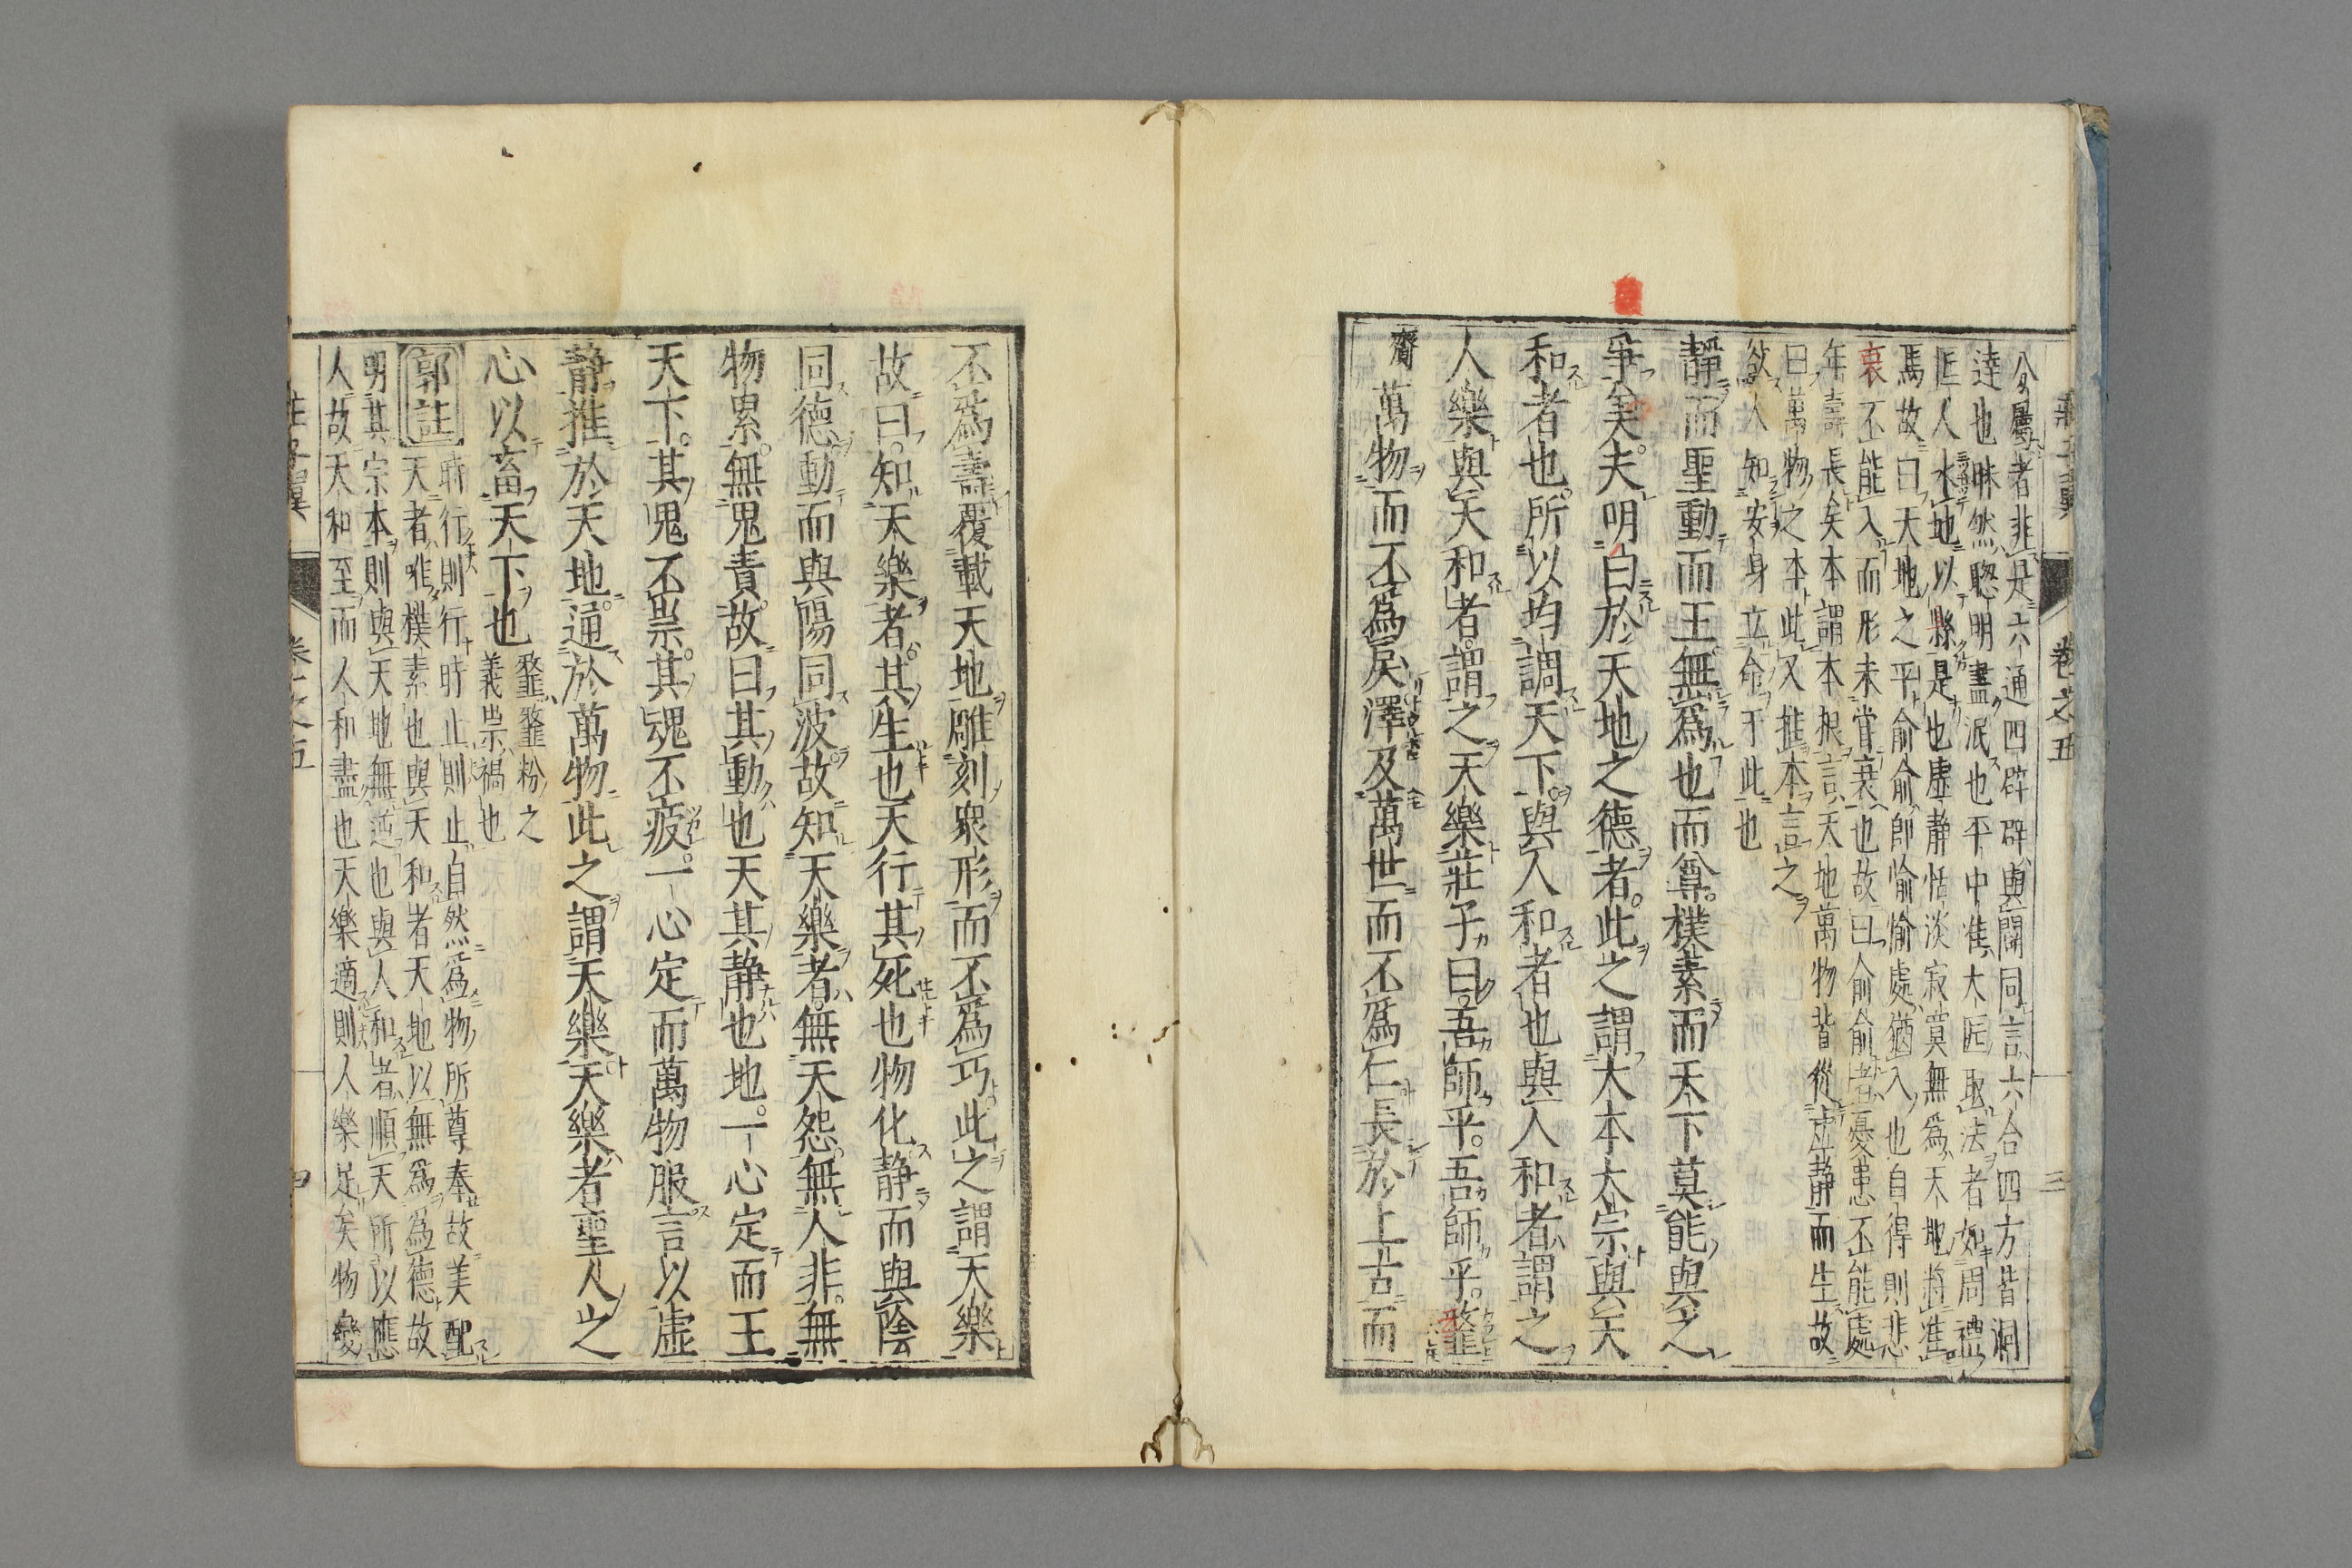 莊子翼 卷之五 三
分屬者非是六通四辟辟與闢同言六合四方皆洞
達也昧然聰明盡泯也平中準大匠取法者如周禮
匠人水地以縣是也虛靜恬淡寂寞無爲天地將準
焉故曰天地之平俞俞卽愉愉處猶入也自得則悲
哀不能入而形未嘗衰也故曰俞俞者憂患不能處
年壽長矣本謂本根言天地萬物皆從虛静而生故
曰萬物之本此又推本言之
欲人知安身立命于此也
靜而聖動而王無爲也而尊樸素而天下莫能與之
爭矣夫明白於天地之德者此之謂大本大宗與天
和者也所以均調天下與人和者也與人和者謂之
人樂與天和者謂之天樂莊子曰吾師乎吾師乎䪠
齏萬物而不爲戾澤及萬世而不爲仁長於上古而
不爲壽覆載天地雕刻衆形而不爲巧此之謂天樂
故曰知天樂者其生也天行其死也物化静而與陰
同德動而與陽同波故知天樂者無天怨無人非無
物累無鬼責故曰其動也天其静也地一心定而王
天下其鬼不祟其魂不疲一心定而萬物服言以虚
静推於天地通於萬物此之謂天樂天樂者聖人之
心以畜天下也 䪠䪠粉之
義祟禍也
郭註 時行則行時止則止自然爲物所尊奉故美配
天者唯樸素也與天和者天地以無爲爲德故
明其宗本則與天地無逆也與人和者順天所以應
人故天和至而人和盡也天樂適則人樂足矣物變
莊子翼 卷之五 四